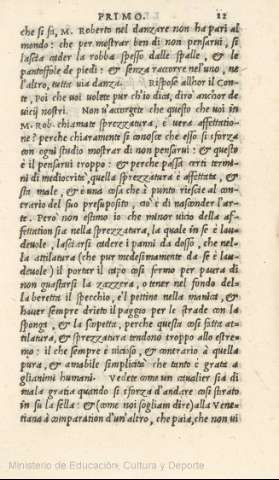 PRIMO. 12
che si sa, M. Roberto nel danzare non ha pari al
mondo: che per mostrar ben di non pensarui, si
lascia cader la robba spesso dalle spalle, & le
pantoffole de piedi: & senza raccorre nel'uno, ne
l'altro, tutta uia danza. Rispose allhor il Con-
te, Poi che uoi uolete pur ch'io dica, dirò anchor de
uicij nostri. Non u'accorgete che questo che uoi in
M. Rob. chiamate sprezzatura, è uera affettatio-
ne? perche chiaramente si conosce che esso si sforza
con ogni studio mostrar di non pensarui: & questo
è il pensarui troppo: & perche passa certi termi-
ni di mediocrità, quella sprezzatura è affettata, &
sta male, & è una cosa che à punto riesce al con-
trario del suo presuposito, cio è di nasconder l'ar-
te. Però non estimo io che minor uicio della af-
fettation sia nella sprezzatura, la quale in se è lau-
deuole, lasciarsi cadere i panni da dosso, che nel-
la attilatura (che pur medesimamente da se è lau-
deuole) il porter il capo cosi fermo per paura di
non guastarsi la zazzera, o tener nel fondo del-
la beretta il specchio, e'l pettine nella manica, &
hauer sempre drieto il paggio per le strade con la
sponga, & la scopetta, perche questa cosi fatta at-
tilatura, & sprezzatura tendono troppo allo estre-
mo: il che sempre è uicioso, & contrario à quella
pura, & amabile simplicità che tanto è grata a
gli animi humani. Vedete come un caualier sia di
mala gratia quando si sforza d'andare cosi stirato
in su la sella: & (come noi sogliam dire) alla Vene-
tiana à comparation d'un'altro, che paia, che non ui
Ministerio de Educación, Cultura y Deporte